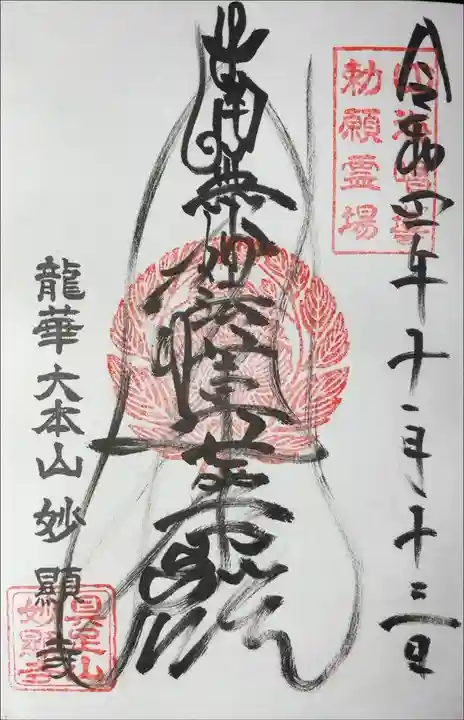 四海唱導
勅願霊場
令和四年十一月十二日
南無妙法蓮華經
龍華大本山妙顯寺
具足山
妙顯寺